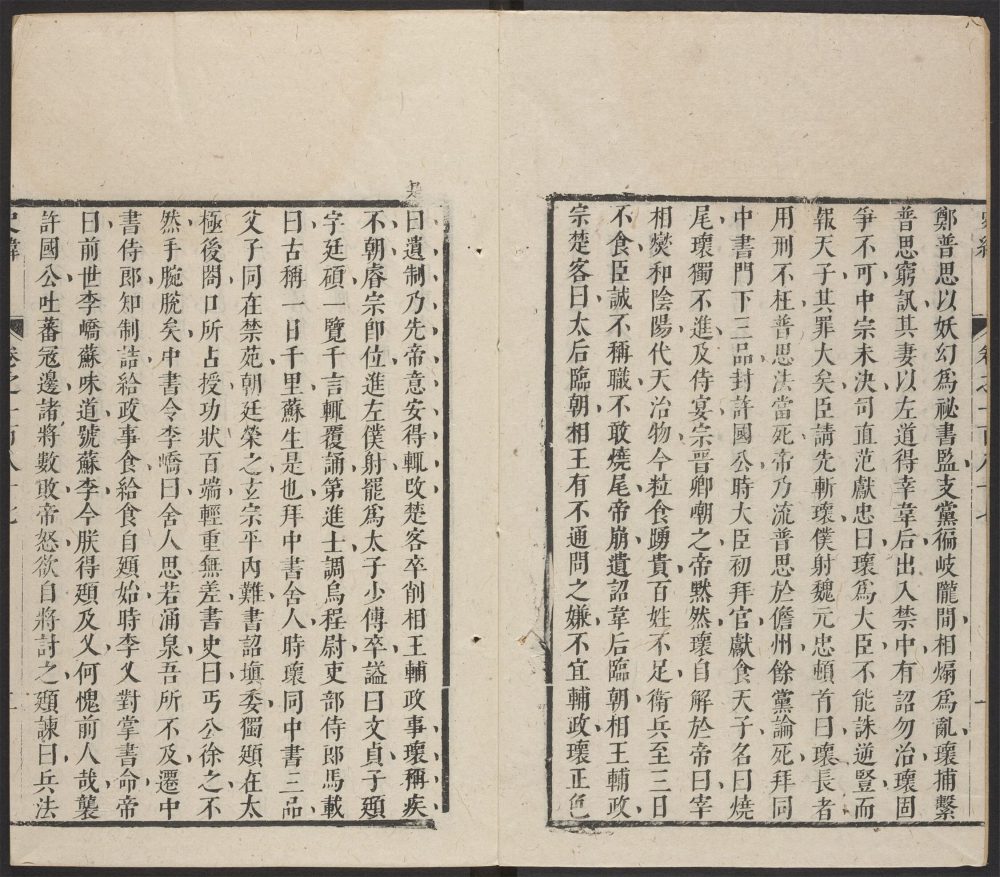 鄭普思以妖幻爲祕書監支黨徧岐隴間相煽爲亂瓌捕繫
普思窮訊其妻以左道得幸韋后出入禁中有詔勿治瓌固
爭不可中宗未決司直范獻忠曰瓌爲大臣不能誅逆豎而
報天子其罪大矣臣請先斬瓌僕射魏元忠頓首曰瓌長者
用刑不枉普思法當死帝乃流普思於儋州餘黨論死拜同
中書門下三品封許國公時大臣初拜官獻食天子名曰燒
尾瓌獨不進及侍宴宗晉卿嘲之帝黙然瓌自解於帝曰宰
相爕和陰陽代天治物今粒食踴貴百姓不足衛兵至三日
不食臣誠不稱職不敢燒尾帝崩遺詔韋后臨朝相王輔政
宗楚客曰太后臨朝相王有不通問之嫌不宜輔政瓌正色
曰遺制乃先帝意安得輒攺楚客卒削相王輔政事瓌稱疾
不朝睿宗卽位進左僕射罷爲太子少傅卒謚曰文貞子頲
字廷碩一覽千言輒覆誦第進士調烏程尉吏部侍郎馬載
曰古稱一日千里蘇生是也拜中書舍人時瓌同中書三品
父子同在禁苑朝廷榮之玄宗平內難書詔塡委獨頲在太
極後閤口所占授功狀百端輕重無差書史曰丐公徐之不
然手腕脫矣中書令李嶠曰舍人思若涌泉吾所不及遷中
書侍郎知制誥給政事食給食自頲始時李乂對掌書命帝
曰前世李嶠蘇味道號蘇李今朕得頲及乂何愧前人哉襲
許國公吐蕃冦邊諸將數敗帝怒欲自將討之頲諫曰兵法
史緯
卷之一百八十九